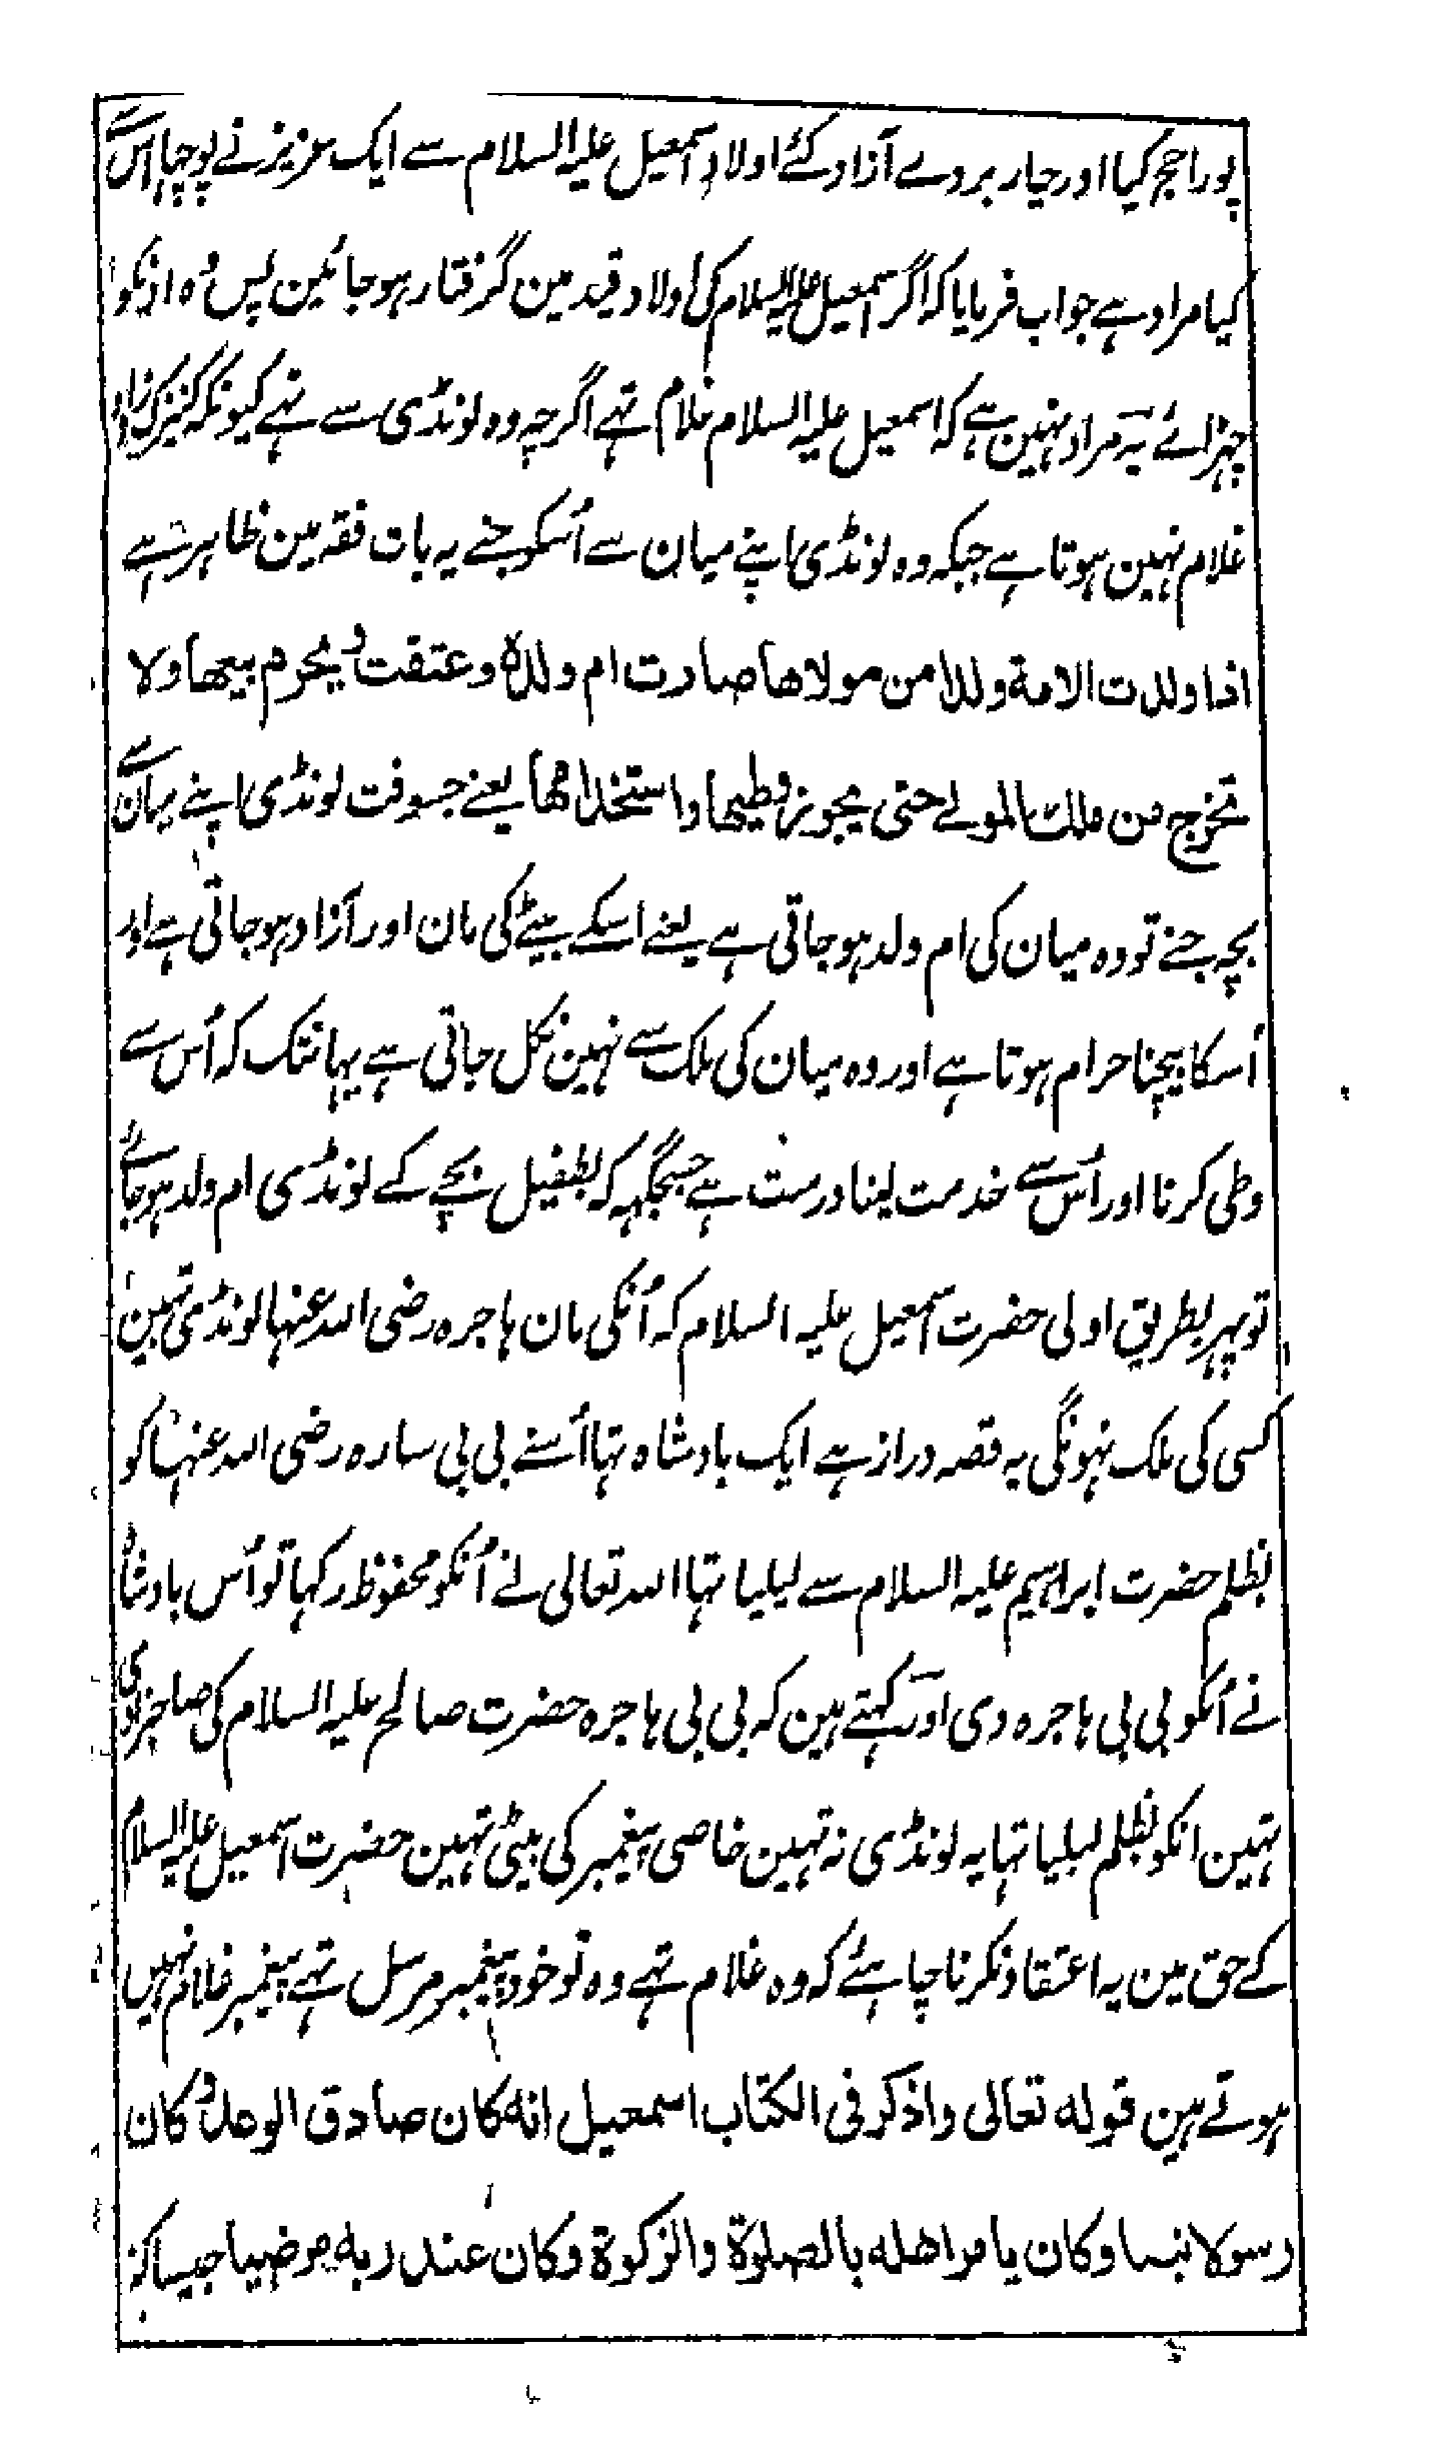 پورا حج کیا اور چار بردے آزاد کئے اولاد اسمعیل علیہ السلام سے ایک عزیز نے پوچھا اس سے
کیا مراد ہے جواب فرمایا کہ اگر اسمعیل علیہ السلام کی اولاد قید مین گرفتار ہو جائین پس وہ اونکو
چہڑائے یہ مراد نہین ہے کہ اسمعیل علیہ السلام غلام تہے اگرچہ وہ لونڈی سے تہے کیونکہ کنیزک زاد
غلام نہین ہوتا ہے جبکہ وہ لونڈی اپنے میان سے اُسکو جنے یہ بات فقہ مین ظاہر ہے
اذا ولدت الامة ولدا من مولاها صارت ام ولده وعتقت ویحرم بیعها ولا
تخرج من ملک المولے حتی یجوز وطیها واستخدامها یعنے جسوقت لونڈی اپنے میان سے
بچہ جنے تو وہ میان کی ام ولد ہو جاتی ہے یعنے اسکے بیٹے کی مان اور آزاد ہو جاتی ہے اور
اُسکا بیچنا حرام ہوتا ہے اور وہ میان کی ملک سے نہین نکل جاتی ہے یہانتک کہ اُس سے
وطی کرنا اور اُس سے خدمت لینا درست ہے جسجگہہ کہ بطفیل بچے کے لونڈی ام ولد ہو جائے
تو پہر بطریق اولی حضرت اسمعیل علیہ السلام کہ اُنکی مان ہاجرہ رضی اللہ عنہا لونڈی تہین
کسی کی ملک نہونگی یہ قصہ دراز ہے ایک بادشاہ تہا اُسنے بی بی سارہ رضی اللہ عنہا کو
بظلم حضرت ابراہیم علیہ السلام سے لیلیا تہا اللہ تعالی نے اُنکو محفوظ رکہا تو اُس بادشاہ
نے اُنکو بی بی ہاجرہ دی اور کہتے ہین کہ بی بی ہاجرہ حضرت صالح علیہ السلام کی صاحبزادی
تہین انکو بظلم لیلیا تہا یہ لونڈی نہ تہین خاصی پیغمبر کی بیٹی تہین حضرت اسمعیل علیہ السلام
کے حق مین یہ اعتقاد نکرنا چاہئے کہ وہ غلام تہے وہ تو خود پیغمبر مرسل تہے پیغمبر غلام نہیں
ہوتے ہین قوله تعالی واذکر فی الکتاب اسمعیل انه کان صادق الوعد وکان
رسولا نبیا وکان یامر اهله بالصلوة والزکوة وکان عند ربه مرضیا جیسا کہ